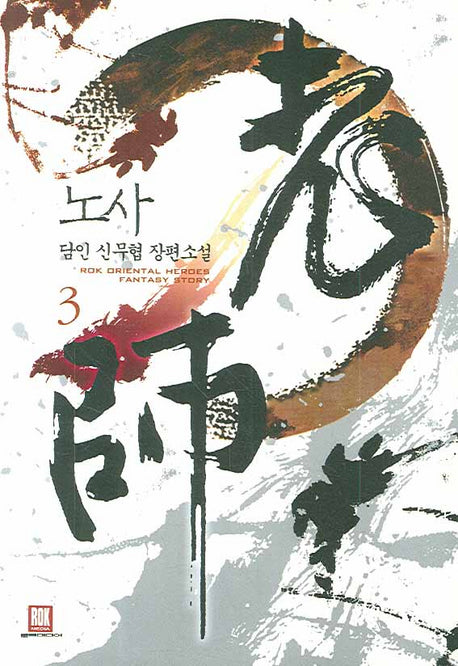 老師
노사
담인 신무협 장편소설
ROK ORIENTAL HEROES
FANTASY STORY
3
ROK
MEDIA
로크미디어